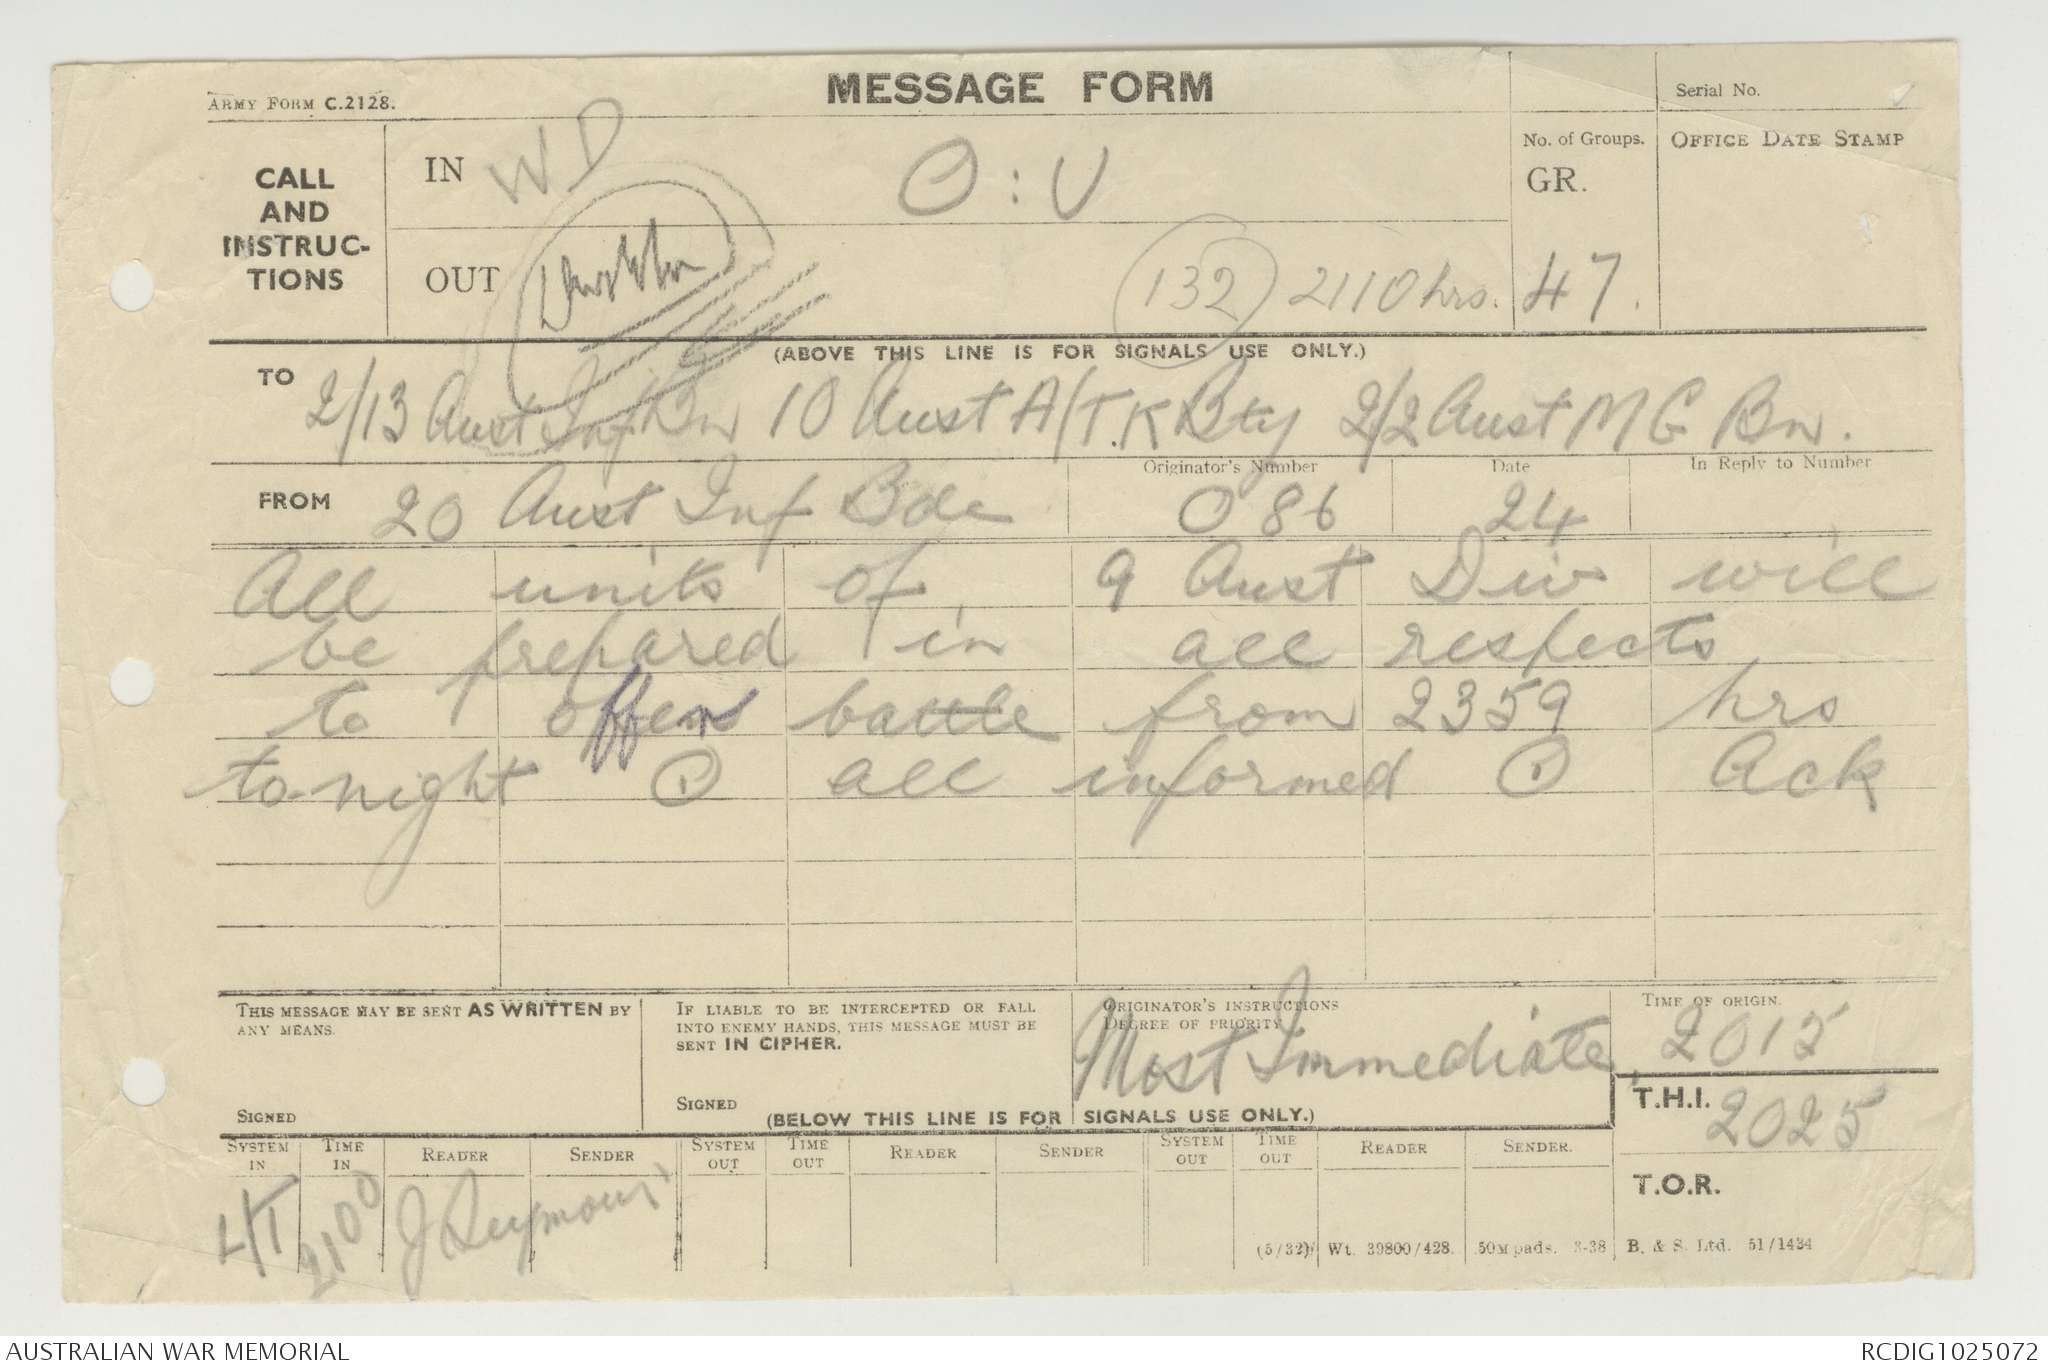 MESSAGE FORM
ARMY FORM C.2128.
Serial No.
CALL
AND
INSTRUC-
TIONS
IN
WD
O : U
No. of Groups.
GR.
OFFICE DATE STAMP
OUT
132
2110 hrs.
47.
(ABOVE THIS LINE IS FOR SIGNALS USE ONLY.)
TO
2/13 Aust Inf Bn 10 Aust A/T.K Bty 2/2 Aust M G Bn.
FROM
20 Aust Inf Bde
Originator's Number
O 86
Date
24
In Reply to Number
All units of 9 Aust Div will
be prepared in all respects
to offer battle from 2359 hrs
to-night ⊙ all informed ⊙ Ack
THIS MESSAGE MAY BE SENT AS WRITTEN BY
ANY MEANS.
SIGNED
IF LIABLE TO BE INTERCEPTED OR FALL
INTO ENEMY HANDS, THIS MESSAGE MUST BE
SENT IN CIPHER.
SIGNED
ORIGINATOR'S INSTRUCTIONS
DEGREE OF PRIORITY
Most Immediate
TIME OF ORIGIN.
2015
T.H.I.
2025
(BELOW THIS LINE IS FOR SIGNALS USE ONLY.)
SYSTEM IN TIME IN READER SENDER SYSTEM OUT TIME OUT READER SENDER SYSTEM OUT TIME OUT READER SENDER.
L/T 2100 J Seymour
T.O.R.
(5/32) Wt. 39800/428. 50M pads. 3-38 B. & S. Ltd. 51/1434
AUSTRALIAN WAR MEMORIAL
RCDIG1025072